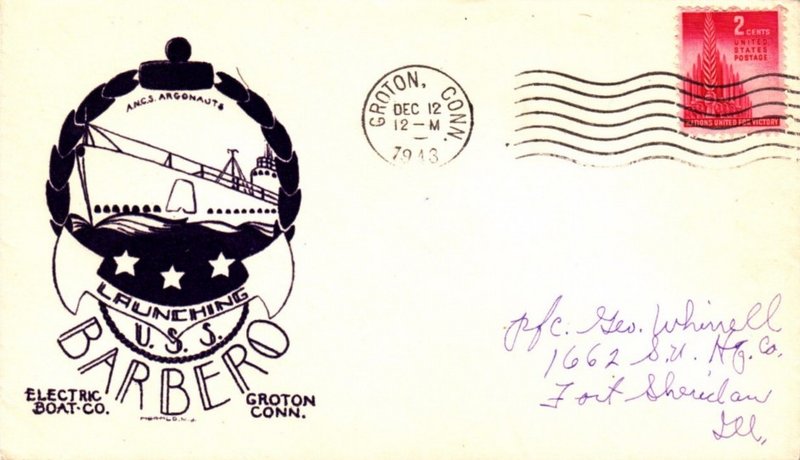 A.N.C.S. ARGONAUTS
LAUNCHING
U.S.S.
BARBERO
ELECTRIC
BOAT-CO.
GROTON
CONN.
GROTON, CONN.
DEC 12
12-M
1943
2 CENTS
UNITED
STATES
POSTAGE
NATIONS UNITED FOR VICTORY
Pfc. Geo. Whinnell
1662 S.U. Hq. Co.
Fort Sheridan
Ill.